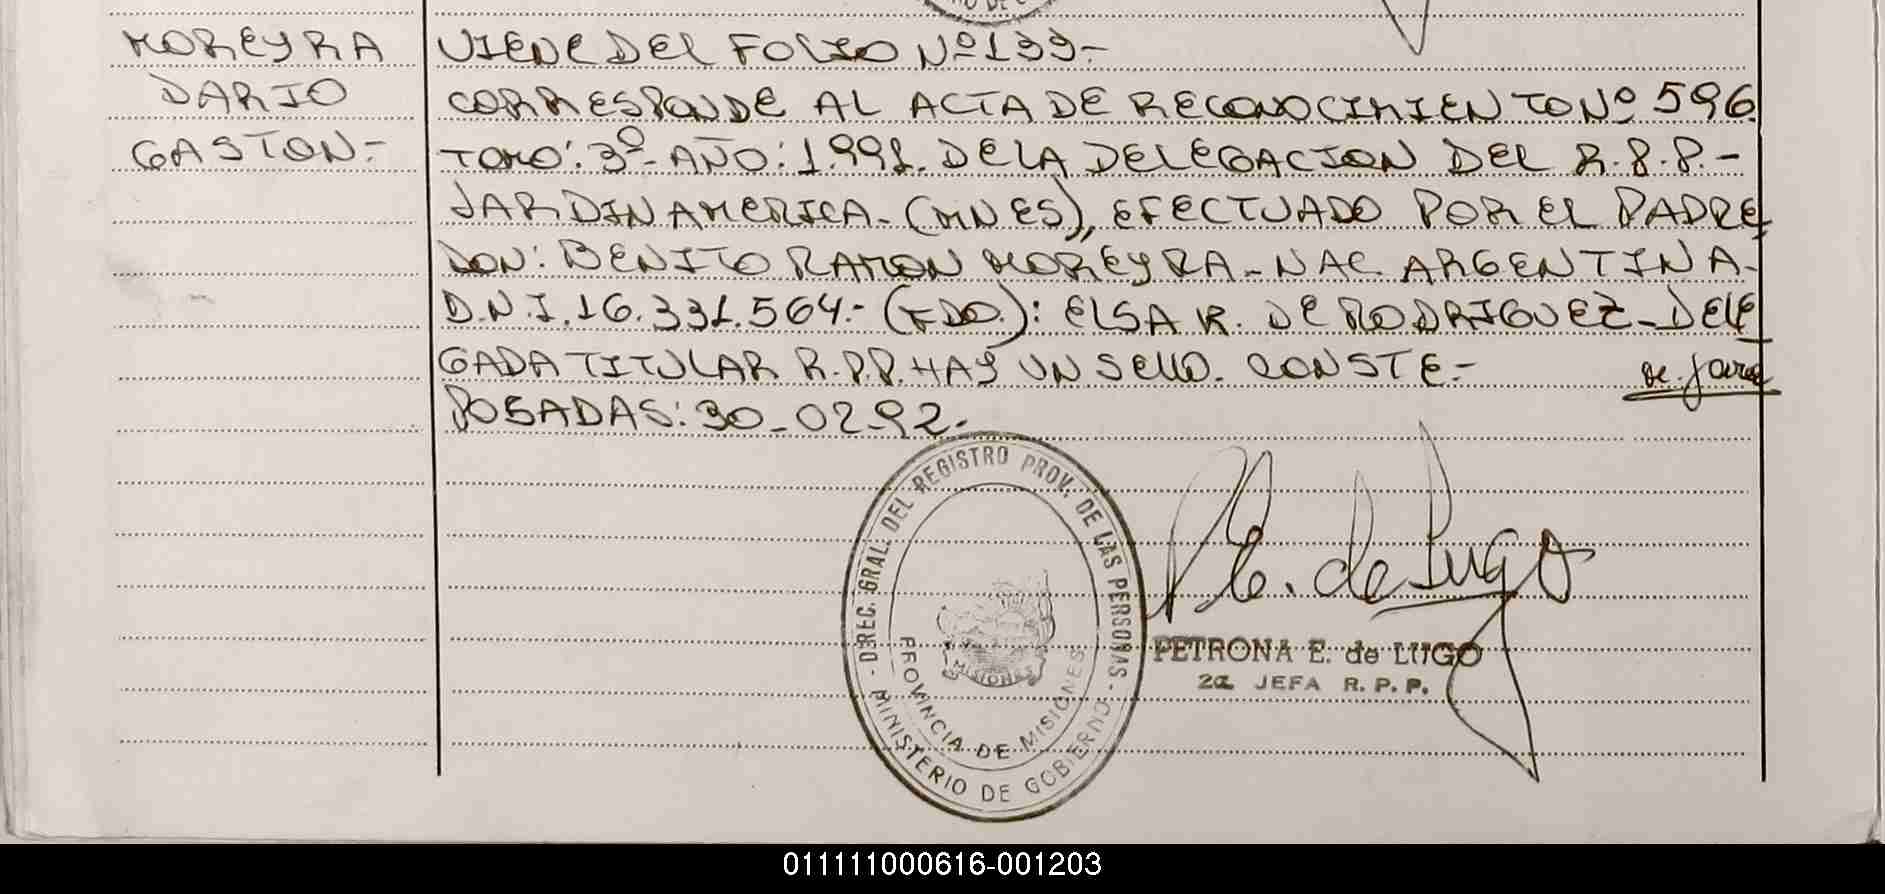 MOREYRA
DARIO
GASTON.-
VIENE DEL FOLIO Nº 199.-
CORRESPONDE AL ACTA DE RECONOCIMIENTO Nº 596
TOMO: 3º- AÑO: 1.991. DE LA DELEGACION DEL R.P.P.-
JARDIN AMERICA.- (MNES), EFECTUADO POR EL PADRE
DON: BENITO RAMON MOREYRA - NAC. ARGENTINA-
D.N.I. 16.331.564.- (FDO.): ELSA R. DE RODRIGUEZ - DELE
GADA TITULAR R.P.P. HAY UN SELLO. CONSTE.-
POSADAS: 30-02-92.-
DIREC. GRAL. DEL REGISTRO PROV. DE LAS PERSONAS -
MINISTERIO DE GOBIERNO
PROVINCIA DE MISIONES
MISIONES
P. E. de Lugo
PETRONA E. de LUGO
2a JEFA R. P. P.
011111000616-001203